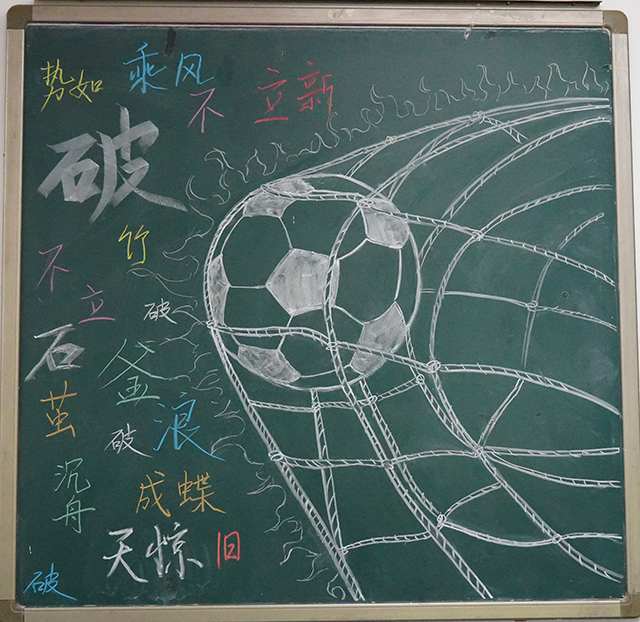 势如 乘风 不 立新
破
竹
不立 破
石 釜
茧 破 浪
沉舟 成蝶
天惊 旧
破